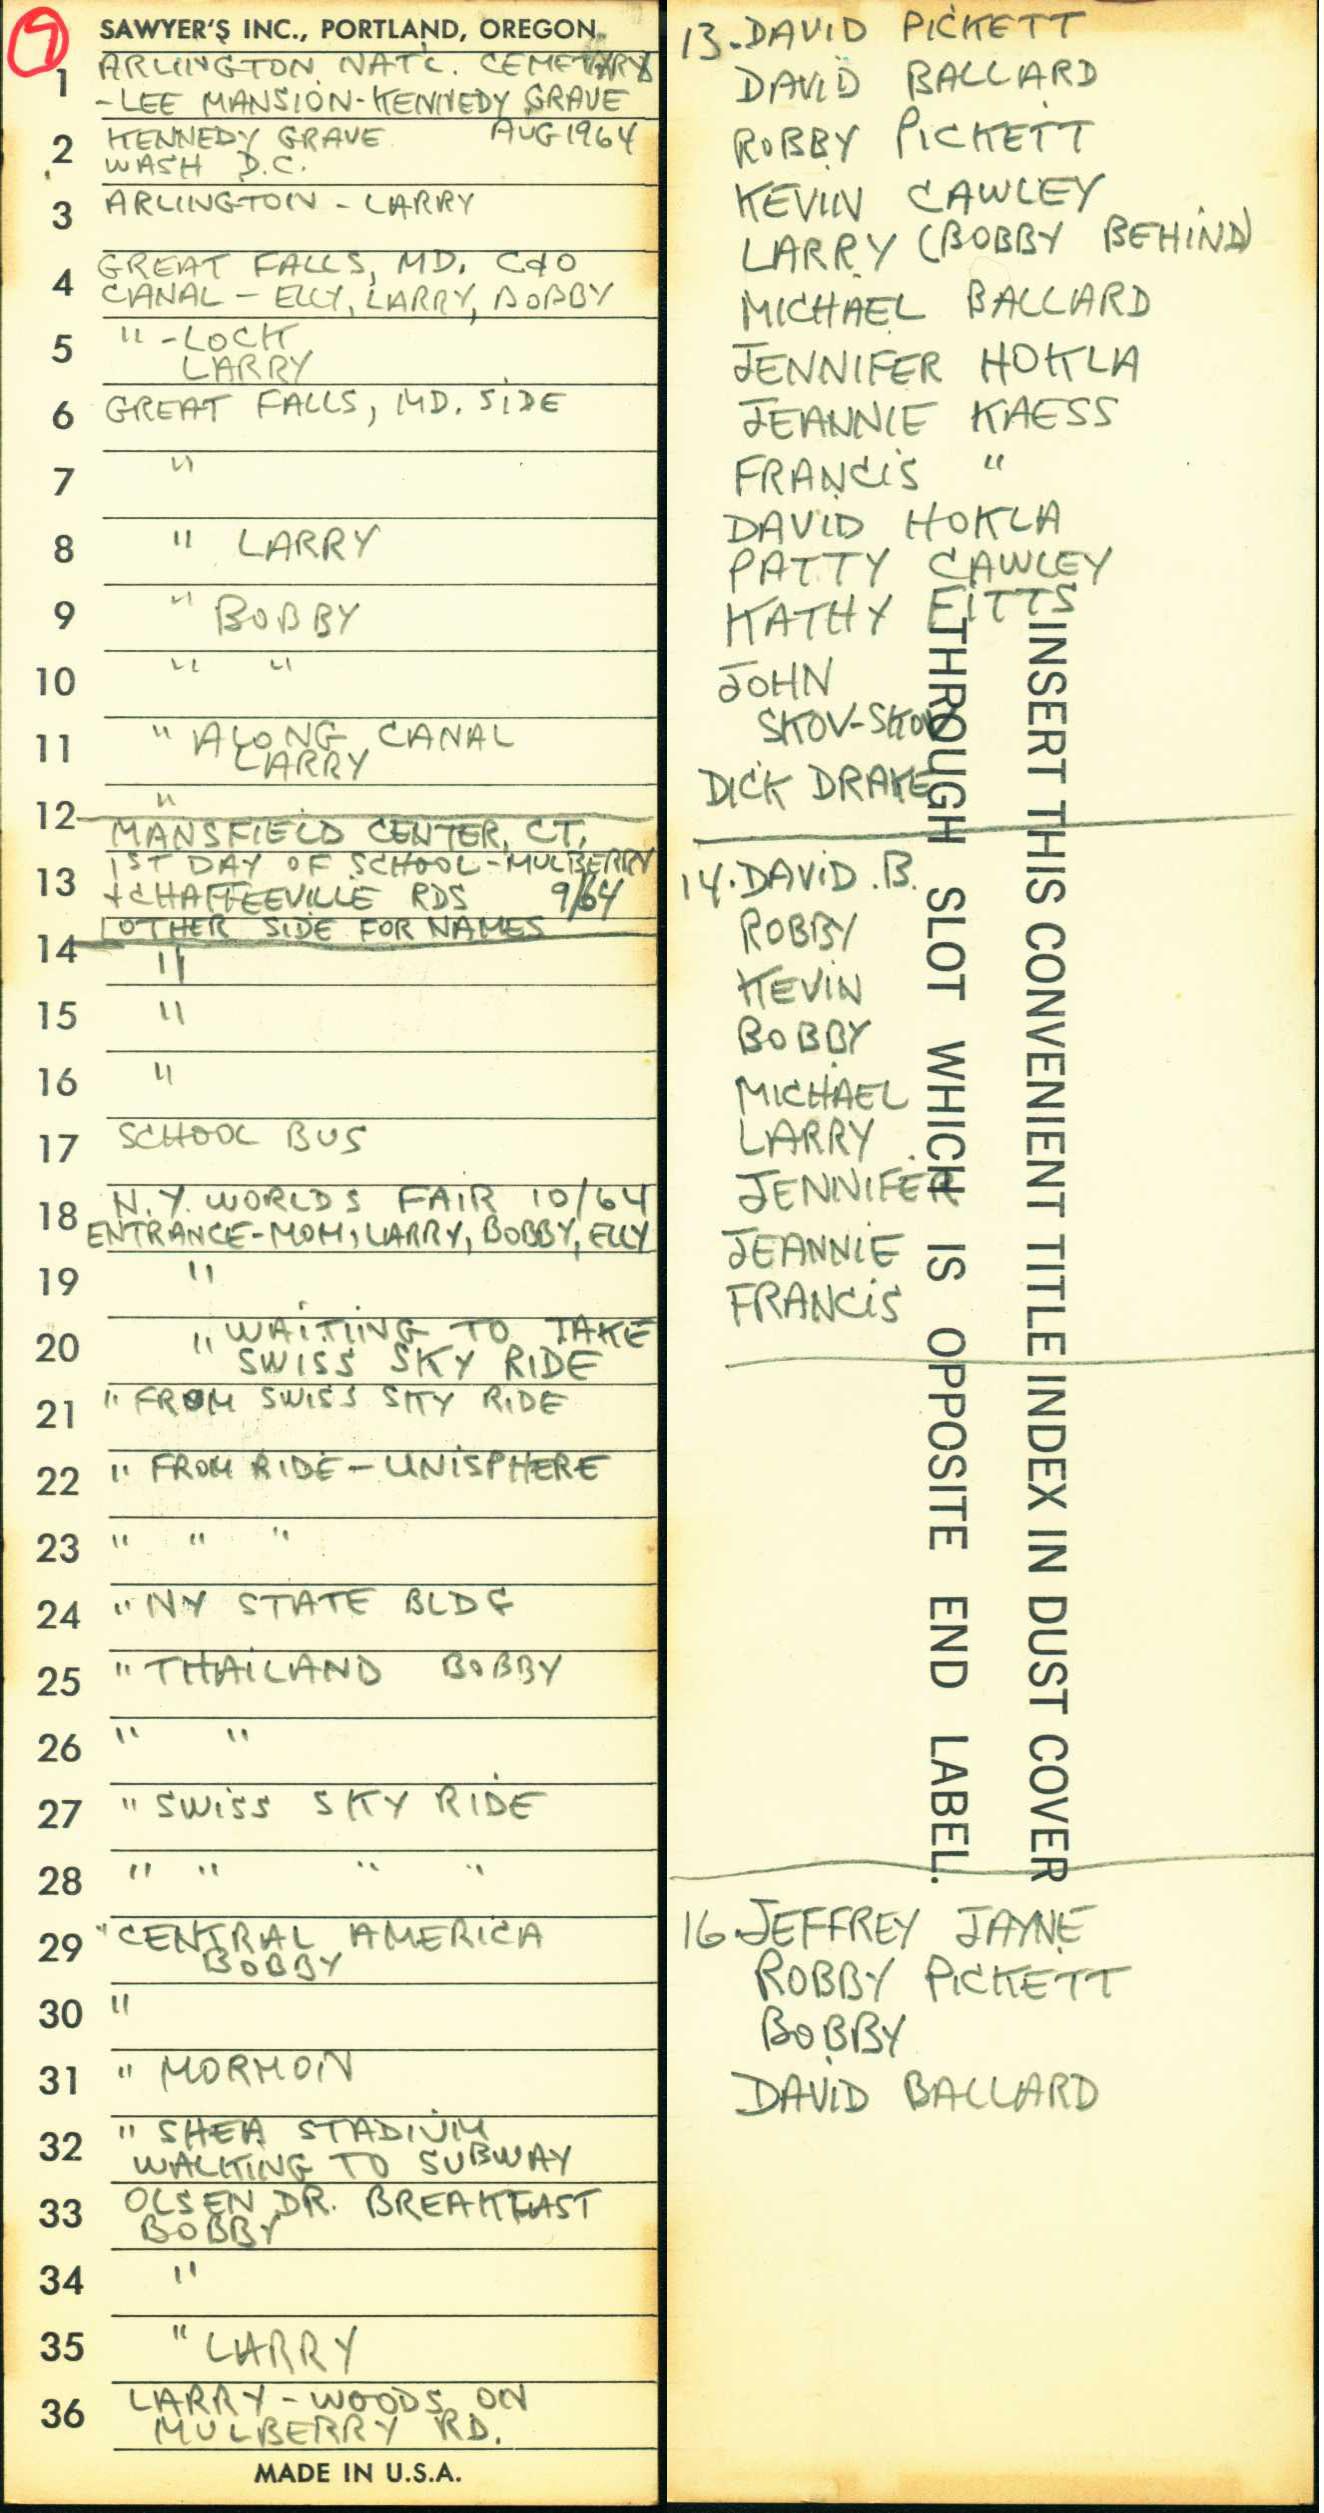 7
SAWYER'S INC., PORTLAND, OREGON.
1 ARLINGTON NAT'L. CEMETARY
-LEE MANSION-KENNEDY GRAVE
2 KENNEDY GRAVE AUG 1964
WASH D.C.
3 ARLINGTON - LARRY
4 GREAT FALLS, MD. C&O
CANAL - ELLY, LARRY, BOBBY
5 " -LOCK
LARRY
6 GREAT FALLS, MD. SIDE
7 "
8 " LARRY
9 " BOBBY
10 " "
11 " ALONG CANAL
LARRY
12 "
MANSFIELD CENTER, CT.
13 1ST DAY OF SCHOOL-MULBERRY
+CHAFFEEVILLE RDS 9/64
OTHER SIDE FOR NAMES
14 "
15 "
16 "
17 SCHOOL BUS
18 N.Y. WORLDS FAIR 10/64
ENTRANCE-MOM, LARRY, BOBBY, ELLY
19 "
20 " WAITING TO TAKE
SWISS SKY RIDE
21 " FROM SWISS SKY RIDE
22 " FROM RIDE - UNISPHERE
23 " " "
24 " NY STATE BLDG
25 " THAILAND BOBBY
26 " "
27 " SWISS SKY RIDE
28 " " " "
29 " CENTRAL AMERICA
BOBBY
30 "
31 " MORMON
32 " SHEA STADIUM
WALKING TO SUBWAY
33 OLSEN DR. BREAKFAST
BOBBY
34 "
35 " LARRY
36 LARRY - WOODS ON
MULBERRY RD.
MADE IN U.S.A.
13. DAVID PICKETT
DAVID BALLARD
ROBBY PICKETT
KEVIN CAWLEY
LARRY (BOBBY BEHIND)
MICHAEL BALLARD
JENNIFER HOKLA
JEANNIE KAESS
FRANCIS "
DAVID HOKLA
PATTY CAWLEY
KATHY FITTS
JOHN
SKOV-SKOV
DICK DRAKE
14. DAVID .B.
ROBBY
KEVIN
BOBBY
MICHAEL
LARRY
JENNIFER
JEANNIE
FRANCIS
16. JEFFREY JAYNE
ROBBY PICKETT
BOBBY
DAVID BALLARD
INSERT THIS CONVENIENT TITLE INDEX IN DUST COVER
THROUGH SLOT WHICH IS OPPOSITE END LABEL.